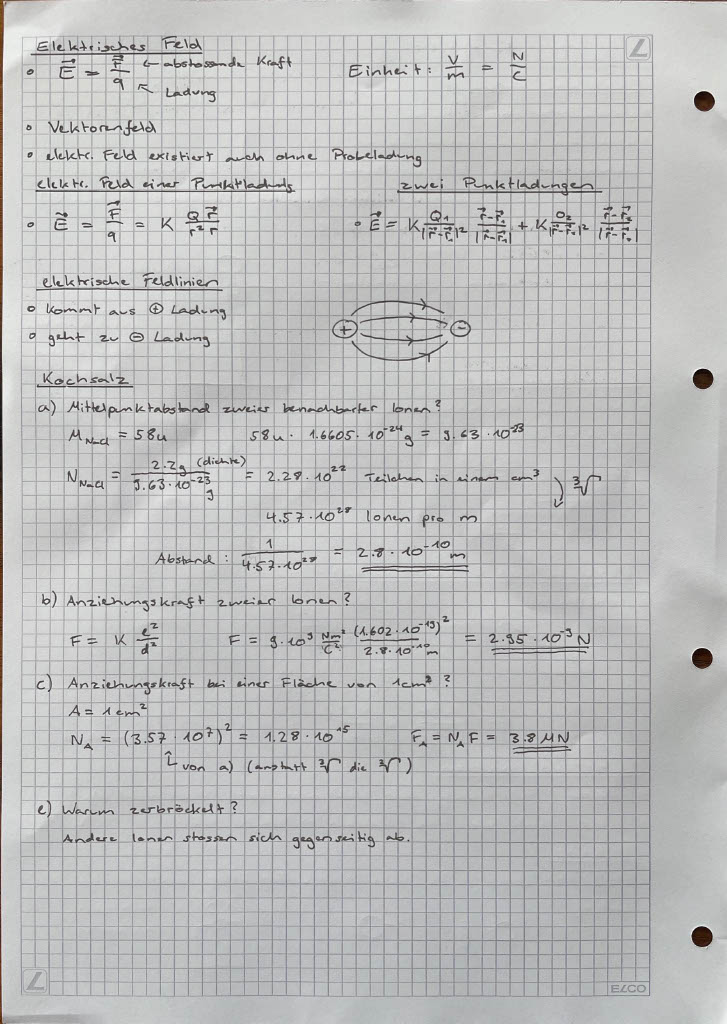 Elektrisches Feld
• E⃗ = F⃗/q ← abstossende Kraft ↖ Ladung Einheit: V/m = N/C
• Vektorenfeld
• elektr. Feld existiert auch ohne Probeladung
elektr. Feld einer Punktladung zwei Punktladungen
• E⃗ = F⃗/q = K Q/r² r⃗/r • E⃗ = K Q₁/|r⃗-r⃗₁|² r⃗-r⃗₁/|r⃗-r⃗₁| + K Q₂/|r⃗-r⃗₂|² r⃗-r⃗₂/|r⃗-r⃗₂|
elektrische Feldlinien
• kommt aus ⊕ Ladung
• geht zu ⊖ Ladung
+ -
Kochsalz
a) Mittelpunktabstand zweier benachbarter Ionen?
M_NaCl = 58u 58u · 1.6605 · 10⁻²⁴ g = 9.63 · 10⁻²³
N_NaCl = 2.2g (dichte)/9.63·10⁻²³ g = 2.28 · 10²² Teilchen in einem cm³ ∛
4.57 · 10²⁸ Ionen pro m
Abstand: 1/4.57·10²⁸ = 2.8 · 10⁻¹⁰ m
b) Anziehungskraft zweier Ionen?
F = K e²/d² F = 9·10⁹ Nm²/C² (1.602·10⁻¹⁹)²/2.8·10⁻¹⁰ m = 2.95 · 10⁻⁹ N
c) Anziehungskraft bei einer Fläche von 1cm²?
A = 1cm²
N_A = (3.57 · 10⁷)² = 1.28 · 10¹⁵ F_A = N_A F = 3.8 MN
von a) (anstatt ∛ die ∛)
e) Warum zerbröckelt?
Andere Ionen stossen sich gegenseitig ab.
ELCO